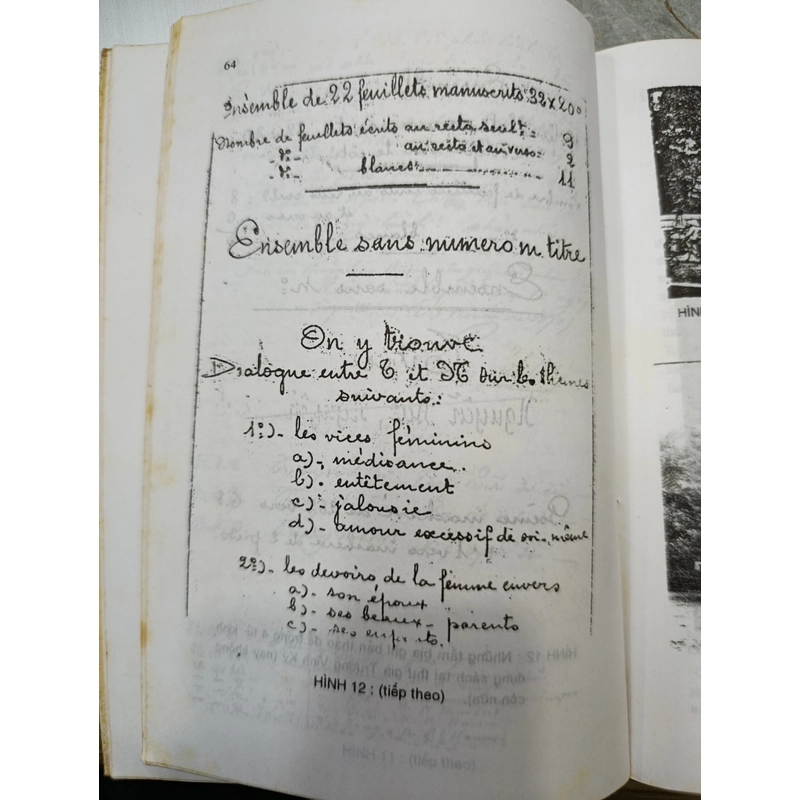 64
Ensemble de 22 feuillets manuscrits 32 x 20
Nombre de feuillets écrits au recto seult = 9
-d:- au recto et au verso = 2
-d:- blancs 11
Ensemble sans numero ni titre
On y trouve
Dialogue entre T et M sur les thèmes
suivants :
1º)- les vices féminins
a)- médisance.
b)- entêtement
c)- jalousie
d)- amour excessif de soi-même
2º)- les devoirs de la femme envers
a)- son époux
b)- ses beaux-parents
c)- ses enfants.
HÌNH 12 : (tiếp theo)
HÌN